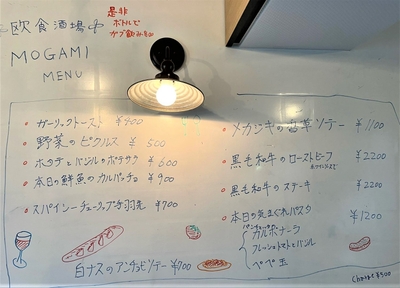 欧食酒場
是非
ボトルで
ガブ飲みを
MOGAMI
MENU
ガーリックトースト ¥400
野菜のピクルス ¥500
ホタテとバジルのポテサラ ¥600
本日の鮮魚のカルパッチョ ¥900
スパイシーチューリップ手羽先 ¥700
白ナスのアンチョビソテー ¥700
メカジキの香草ソテー ¥1100
黒毛和牛のローストビーフ ¥2200
黒毛和牛のステーキ ¥2200
本日の気まぐれパスタ ¥1200
カルボナーラ
フレッシュトマトとバジル
ペペ玉
Charge ¥500